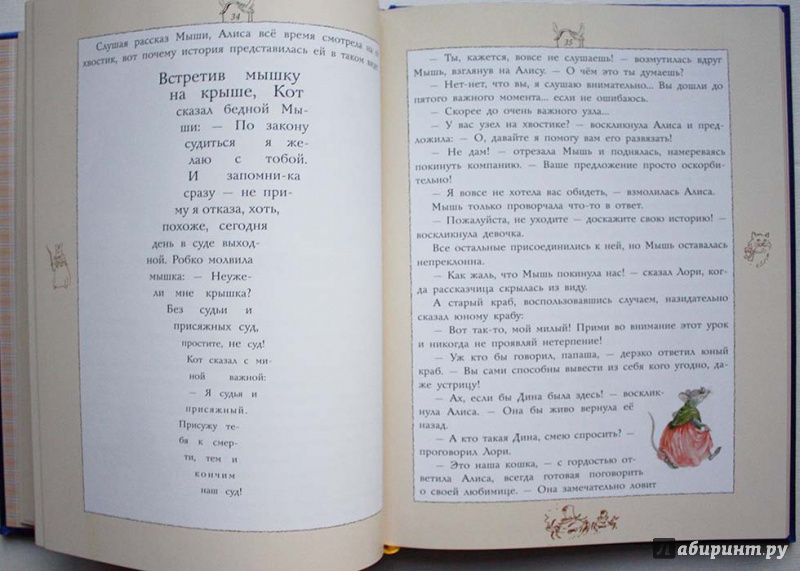 34
Слушая рассказ Мыши, Алиса всё время смотрела на
хвостик, вот почему история представилась ей в таком виде
Встретив мышку
на крыше, Кот
сказал бедной Мы-
ши: — По закону
судиться я же-
лаю с тобой.
И запомни-ка
сразу — не при-
му я отказа, хоть,
похоже, сегодня
день в суде выход-
ной. Робко молвила
мышка: — Неуже-
ли мне крышка?
Без судьи и
присяжных суд,
простите, не суд!
Кот сказал с ми-
ной важной:
— Я судья и
присяжный.
Присужу те-
бя к смер-
ти, тем и
кончим
наш суд!
35
— Ты, кажется, вовсе не слушаешь! — возмутилась вдруг
Мышь, взглянув на Алису. — О чём это ты думаешь?
— Нет-нет, что вы, я слушаю внимательно... Вы дошли до
пятого важного момента... если не ошибаюсь.
— Скорее до очень важного узла...
— У вас узел на хвостике? — воскликнула Алиса и пред-
ложила: — О, давайте я помогу вам его развязать!
— Не дам! — отрезала Мышь и поднялась, намереваясь
покинуть компанию. — Ваше предложение просто оскорби-
тельно!
— Я вовсе не хотела вас обидеть, — взмолилась Алиса.
Мышь только проворчала что-то в ответ.
— Пожалуйста, не уходите — доскажите свою историю! —
воскликнула девочка.
Все остальные присоединились к ней, но Мышь оставалась
непреклонна.
— Как жаль, что Мышь покинула нас! — сказал Лори, ког-
да рассказчица скрылась из виду.
А старый краб, воспользовавшись случаем, назидательно
сказал юному крабу:
— Вот так-то, мой милый! Прими во внимание этот урок
и никогда не проявляй нетерпение!
— Уж кто бы говорил, папаша, — дерзко ответил юный
краб. — Вы сами способны вывести из себя кого угодно, да-
же устрицу!
— Ах, если бы Дина была здесь! — восклик-
нула Алиса. — Она бы живо вернула её
назад.
— А кто такая Дина, смею спросить? —
проговорил Лори.
— Это наша кошка, — с гордостью от-
ветила Алиса, всегда готовая поговорить
о своей любимице. — Она замечательно ловит
Лабиринт.ру